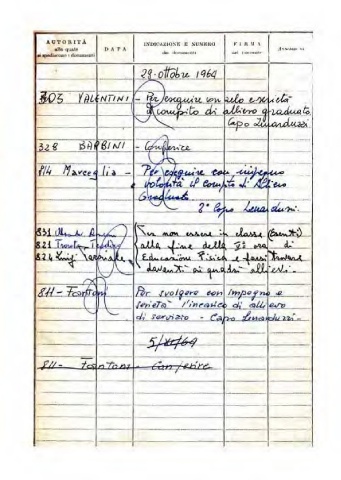 AUTORITÀ
alla quale
si spediscono i documenti
DATA
INDICAZIONE E NUMERO
dei documenti
FIRMA
del ricevente
Annotazioni
29-ottobre 1964
303 VALENTINI - Per eseguire con zelo e serietà
il compito di allievo graduato
Capo Lenarduzzi
328 BARBINI - Conferire
814 Marceglia - Per eseguire con impegno
e volontà il compito di Allievo
Graduato
2° Capo Lenarduzzi.
831 
821 
824 Luigi
Per non essere in classe (esenti)
alla fine della Vª ora di
Educazione Fisica e farsi trovare
davanti ai quadri allievi.
811 - Fantoni
Per svolgere con impegno e
serietà l'incarico di allievo
di servizio - Capo Lenarduzzi -
811 - Fantoni - Conferire